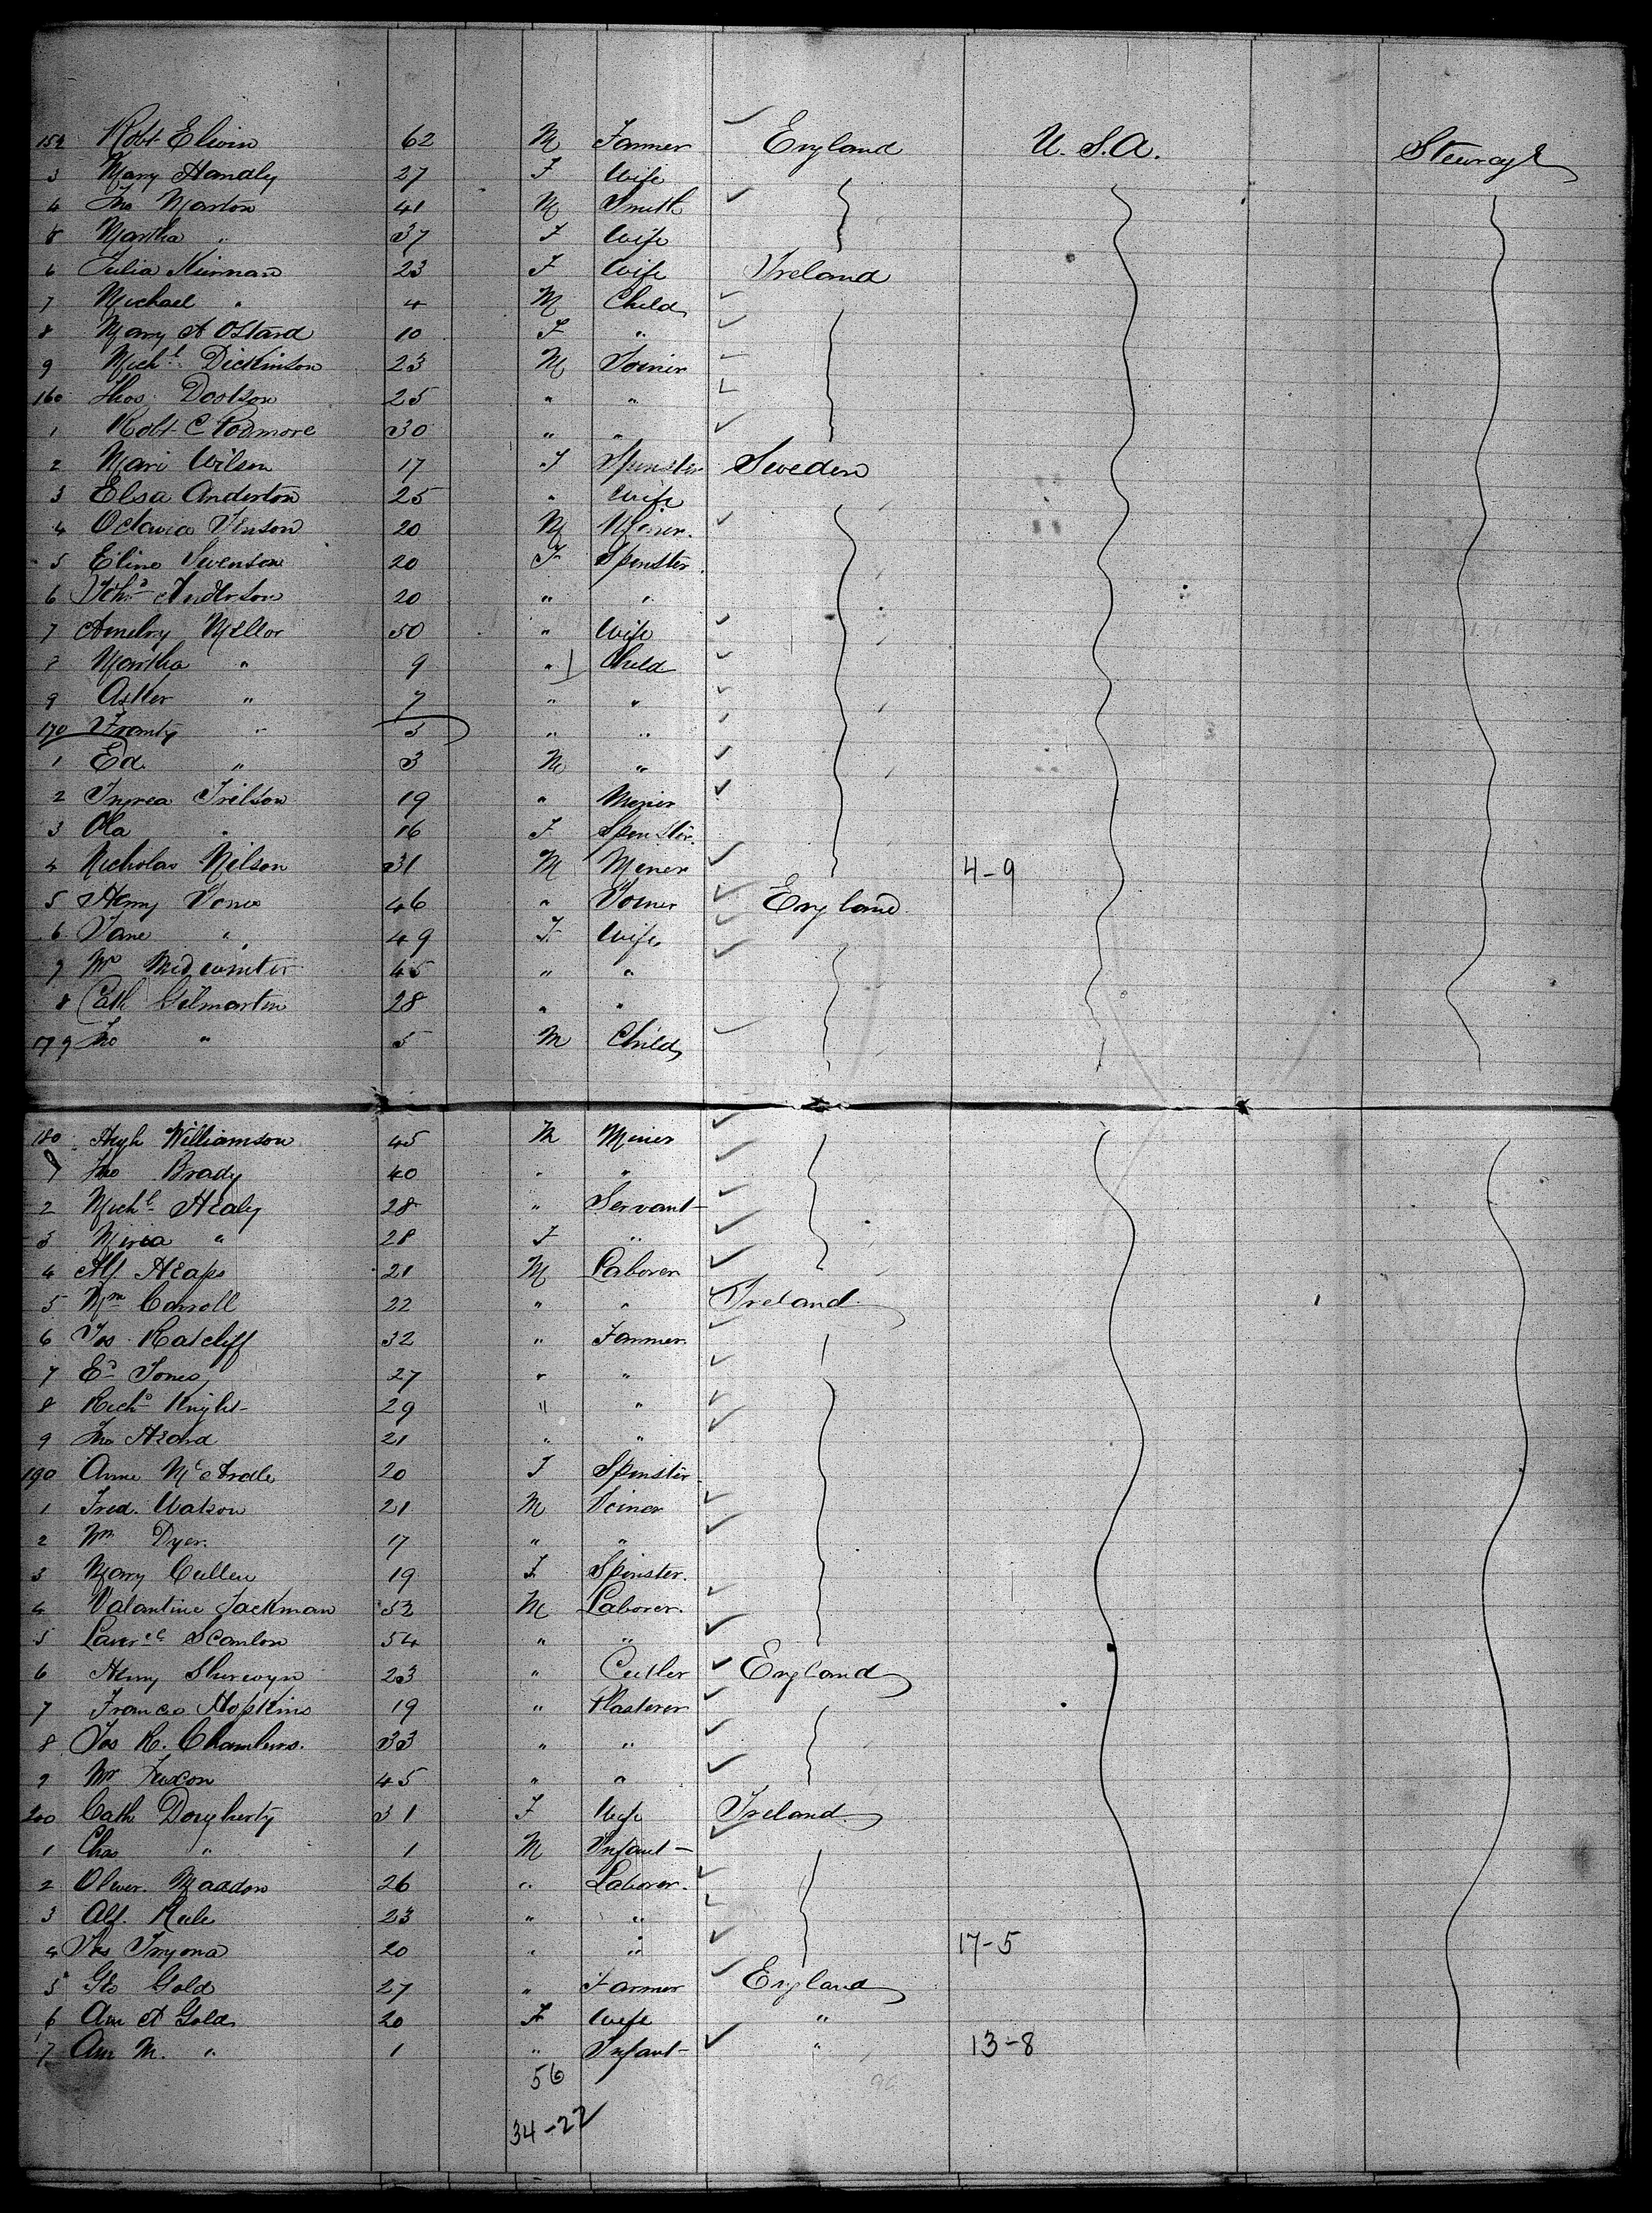 152 Robt Elwin 62 M Farmer England U.S.A. Steerage
3 Mary Handly 27 F Wife
4 Jno Marton 41 M Smith
5 Martha " 37 F Wife
6 Julia Kiernan 23 F Wife Ireland
7 Michael " 4 M Child
8 Mary A Ostard 10 F "
9 Michl Dickinson 23 M Joiner
160 Thos Dodson 25 " "
1 Robt C Podmore 30 " "
2 Mari Wilson 17 F Spinster Sweden
3 Elsa Anderton 25 " Wife
4 Octavia 20 M Miner
5 Eline Swenson 20 F Spinster
6 Johna Anderson 20 " "
7 Mellor 50 " Wife
8 Martha " 9 " Child
9 Asker " 7 " "
170 " 5 " "
1 Ed " 3 M "
2 19 " Miner
3 Ola " 16 F Spinster
4 Nicholas Nilson 31 M Miner 4-9
5 Henry Jones 46 " Joiner England
6 Jane " 49 F Wife
7 Mrs Midwinter 45 " "
8 Cath Gilmartin 28 " "
179 Jno " 5 M Child
180 Hugh Williamson 45 M Miner
1 Jno Brady 40 " "
2 Michl Healy 28 " Servant
3 Miria " 28 F "
4 Alf Heaps 21 M Laborer
5 Wm Carroll 22 " " Ireland
6 Jos Ratcliff 32 " Farmer
7 Ed Jones 27 " "
8 Richd Knight 29 " "
9 Jno Heard 21 " "
190 Anne McArdle 20 F Spinster
1 Fred. Watson 21 M Joiner
2 Wm Dyer. 17 " "
3 Mary Cullen 19 F Spinster.
4 Valantine Jackman 52 M Laborer.
5 Lawrce Scanlon 54 " "
6 Henry Sherwyn 23 " Cutler England
7 Francis Hopkins 19 " Plasterer
8 Jos R. Chambers. 33 " "
9 Wm 45 " "
200 Cath Dougherty 31 F Wife Ireland
1 Chas " 1 M Infant
2 Oliver. Maddon 26 " Laborer.
3 Alf. Rule 23 " "
4 Jos 20 " " 17-5
5 Geo Gold 27 " Farmer England
6 Ann A Gold 20 F Wife "
7 Ann M. " 1 " Infant " 13-8
56
34-22